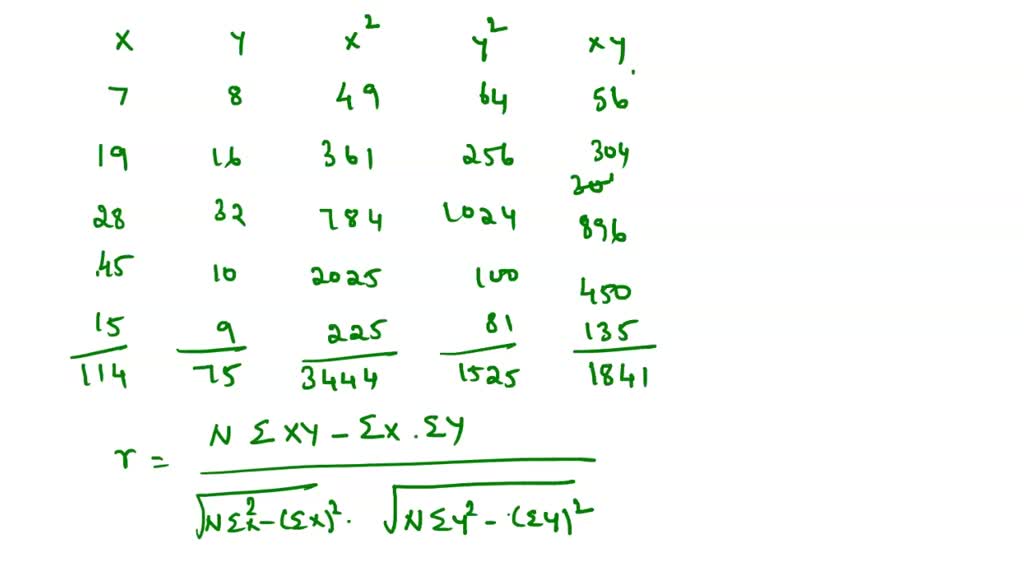 x y x² y² xy
7 8 49 64 56
19 16 361 256 304
28 32 784 1024 896
45 10 2025 100 450
15 9 225 81 135
114 75 3444 1525 1841
r = N Σ XY - ΣX . ΣY
√NΣx² - (Σx)² . √NΣy² - (Σy)²